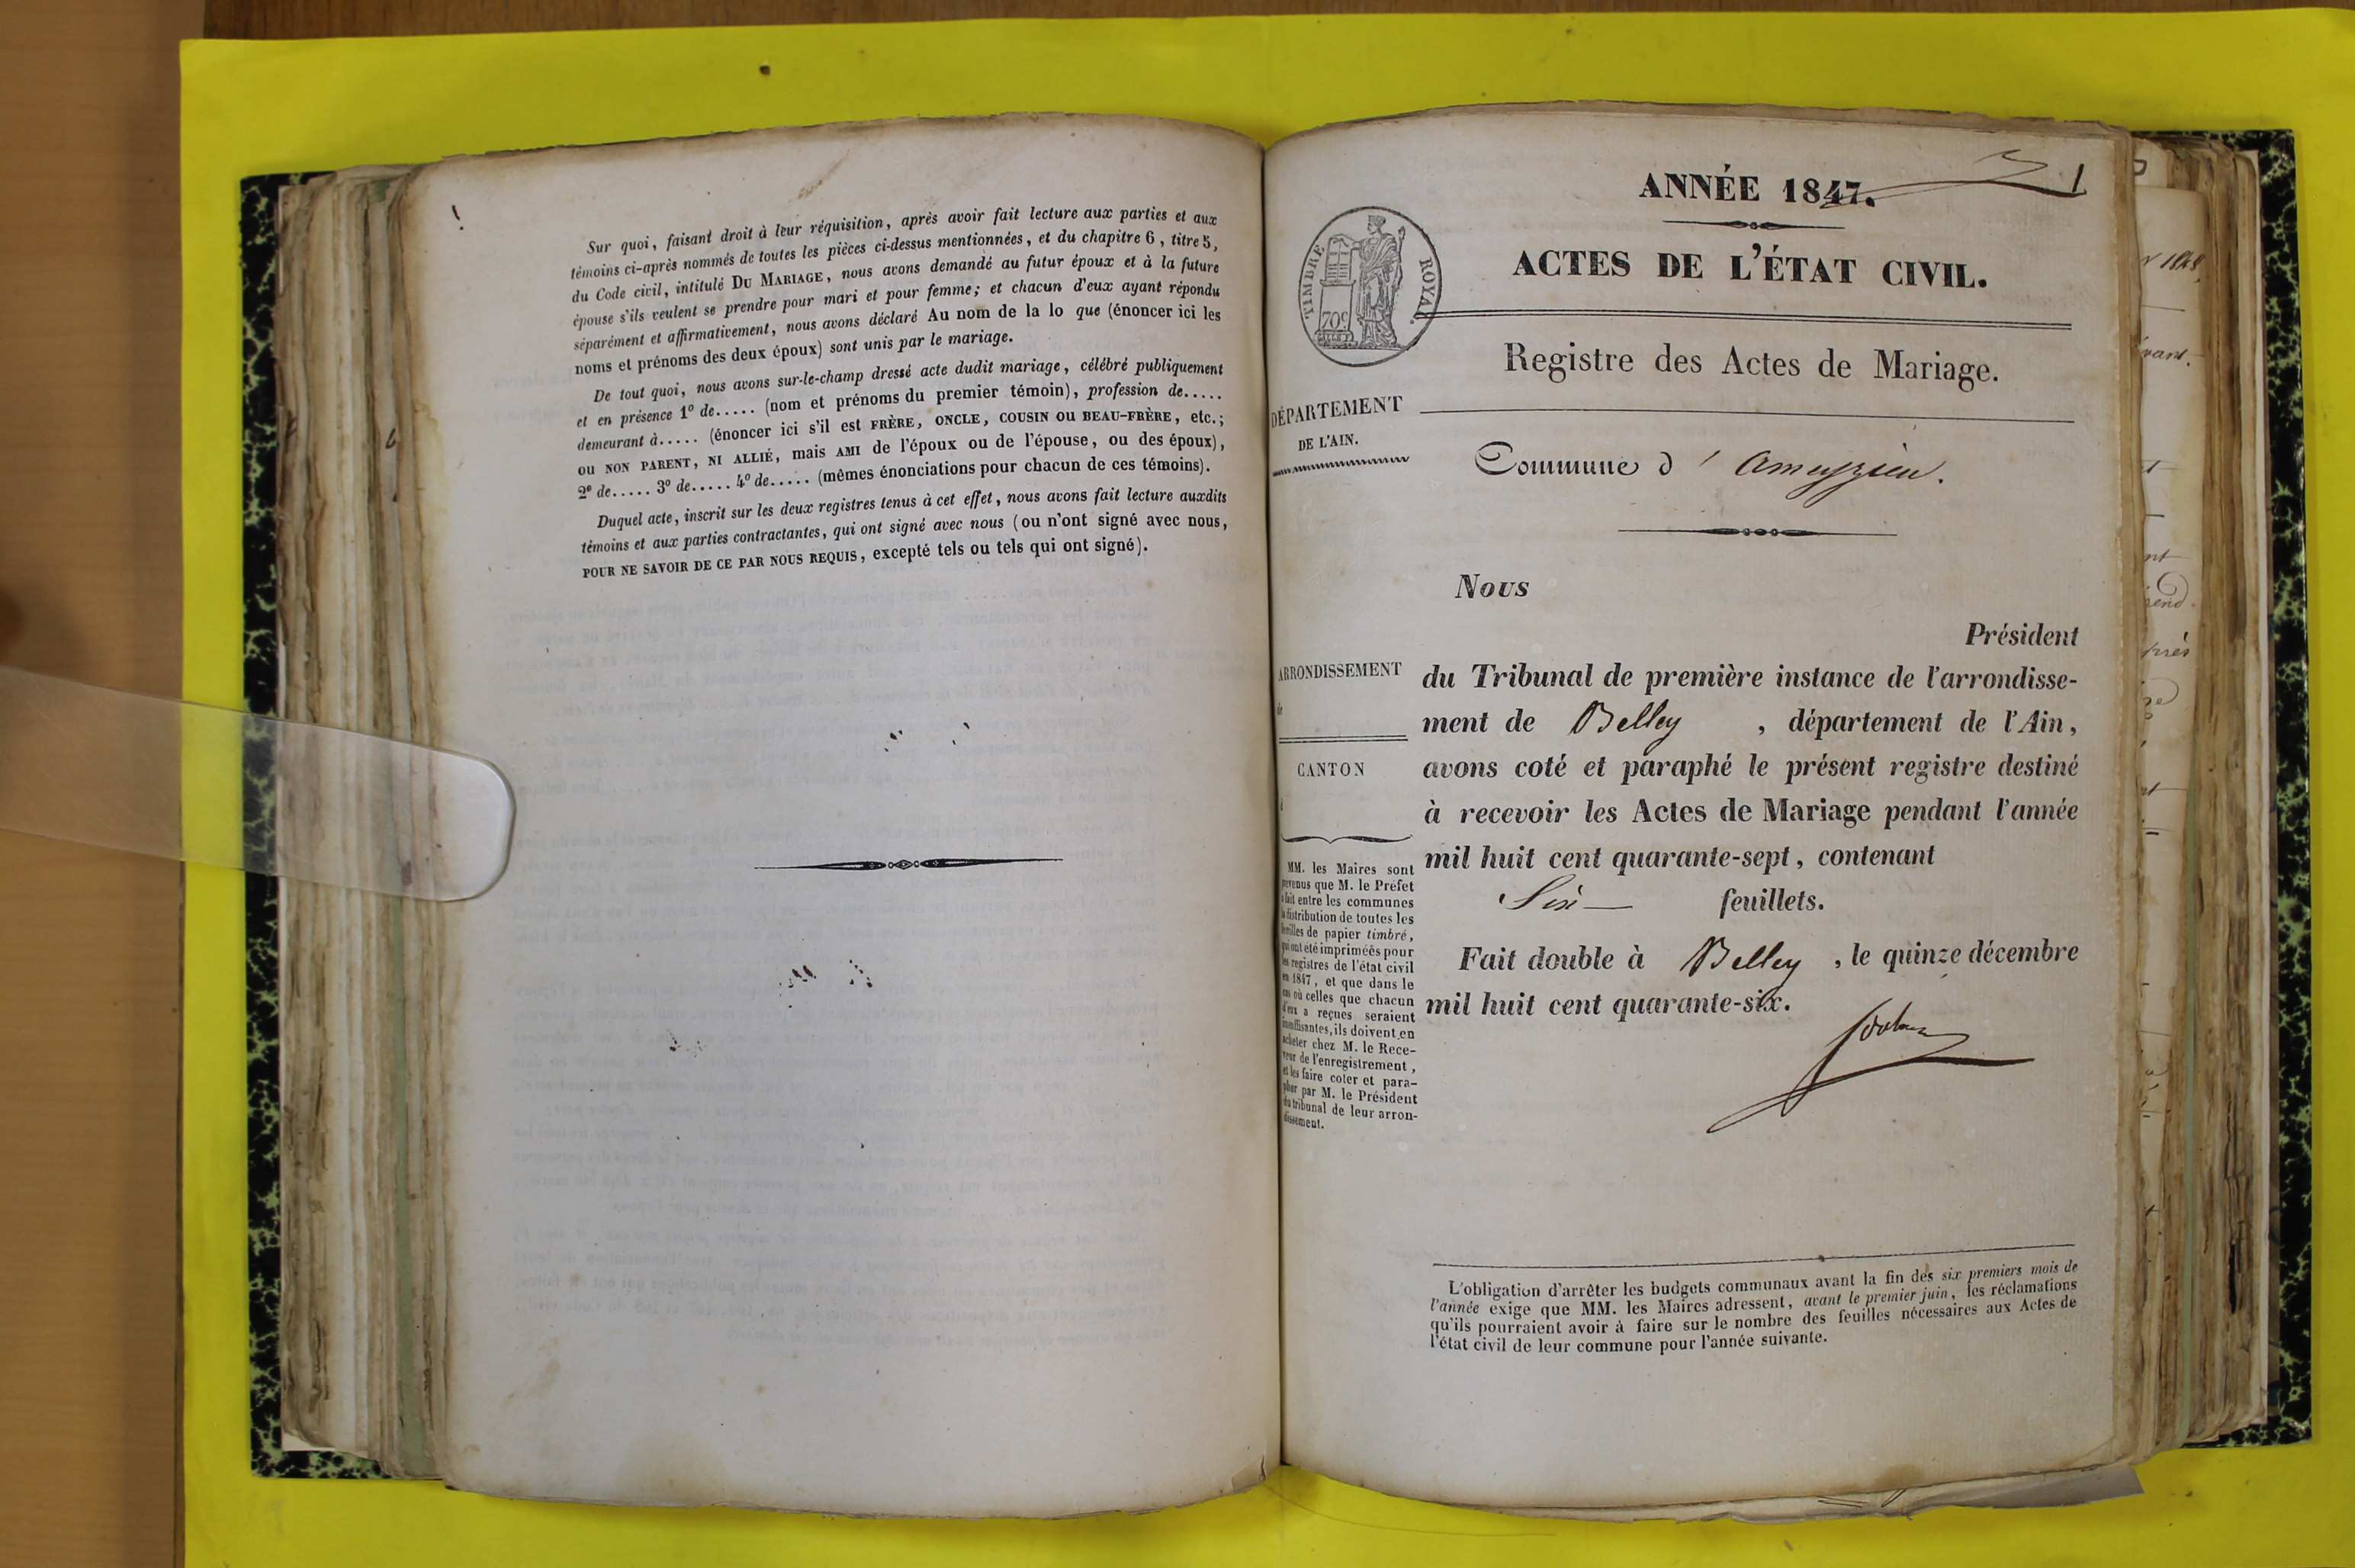 Sur quoi, faisant droit à leur réquisition, après avoir fait lecture aux parties et aux
témoins ci-après nommés de toutes les pièces ci-dessus mentionnées, et du chapitre 6, titre 5,
du Code civil, intitulé DU MARIAGE, nous avons demandé au futur époux et à la future
épouse s'ils veulent se prendre pour mari et pour femme; et chacun d'eux ayant répondu
séparément et affirmativement, nous avons déclaré Au nom de la lo que (énoncer ici les
noms et prénoms des deux époux) sont unis par le mariage.
De tout quoi, nous avons sur-le-champ dressé acte dudit mariage, célébré publiquement
et en présence 1º de..... (nom et prénoms du premier témoin), profession de.....
demeurant à..... (énoncer ici s'il est FRÈRE, ONCLE, COUSIN OU BEAU-FRÈRE, etc.;
OU NON PARENT, NI ALLIÉ, mais AMI de l'époux ou de l'épouse, ou des époux),
2e de..... 3º de..... 4º de..... (mêmes énonciations pour chacun de ces témoins).
Duquel acte, inscrit sur les deux registres tenus à cet effet, nous avons fait lecture auxdits
témoins et aux parties contractantes, qui ont signé avec nous (ou n'ont signé avec nous,
POUR NE SAVOIR DE CE PAR NOUS REQUIS, excepté tels ou tels qui ont signé).
1
ANNÉE 1847.
TIMBRE ROYAL
70c
ACTES DE L'ÉTAT CIVIL.
Registre des Actes de Mariage.
DÉPARTEMENT
DE L'AIN.
Commune d'Ameyzieu.
Nous
Président
du Tribunal de première instance de l'arrondisse-
ment de Belley, département de l'Ain,
avons coté et paraphé le présent registre destiné
à recevoir les Actes de Mariage pendant l'année
mil huit cent quarante-sept, contenant
Six feuillets.
Fait double à Belley, le quinze décembre
mil huit cent quarante-six.
ARRONDISSEMENT
de
CANTON
MM. les Maires sont
prévenus que M. le Préfet
a fait entre les communes
la distribution de toutes les
feuilles de papier timbré,
qui ont été impriméés pour
les registres de l'état civil
en 1847, et que dans le
cas où celles que chacun
d'eux a reçues seraient
insuffisantes, ils doivent en
acheter chez M. le Rece-
veur de l'enregistrement,
et les faire coter et para-
pher par M. le Président
du tribunal de leur arron-
dissement.
L'obligation d'arrêter les budgets communaux avant la fin des six premiers mois de
l'année exige que MM. les Maires adressent, avant le premier juin, les réclamations
qu'ils pourraient avoir à faire sur le nombre des feuilles nécessaires aux Actes de
l'état civil de leur commune pour l'année suivante.